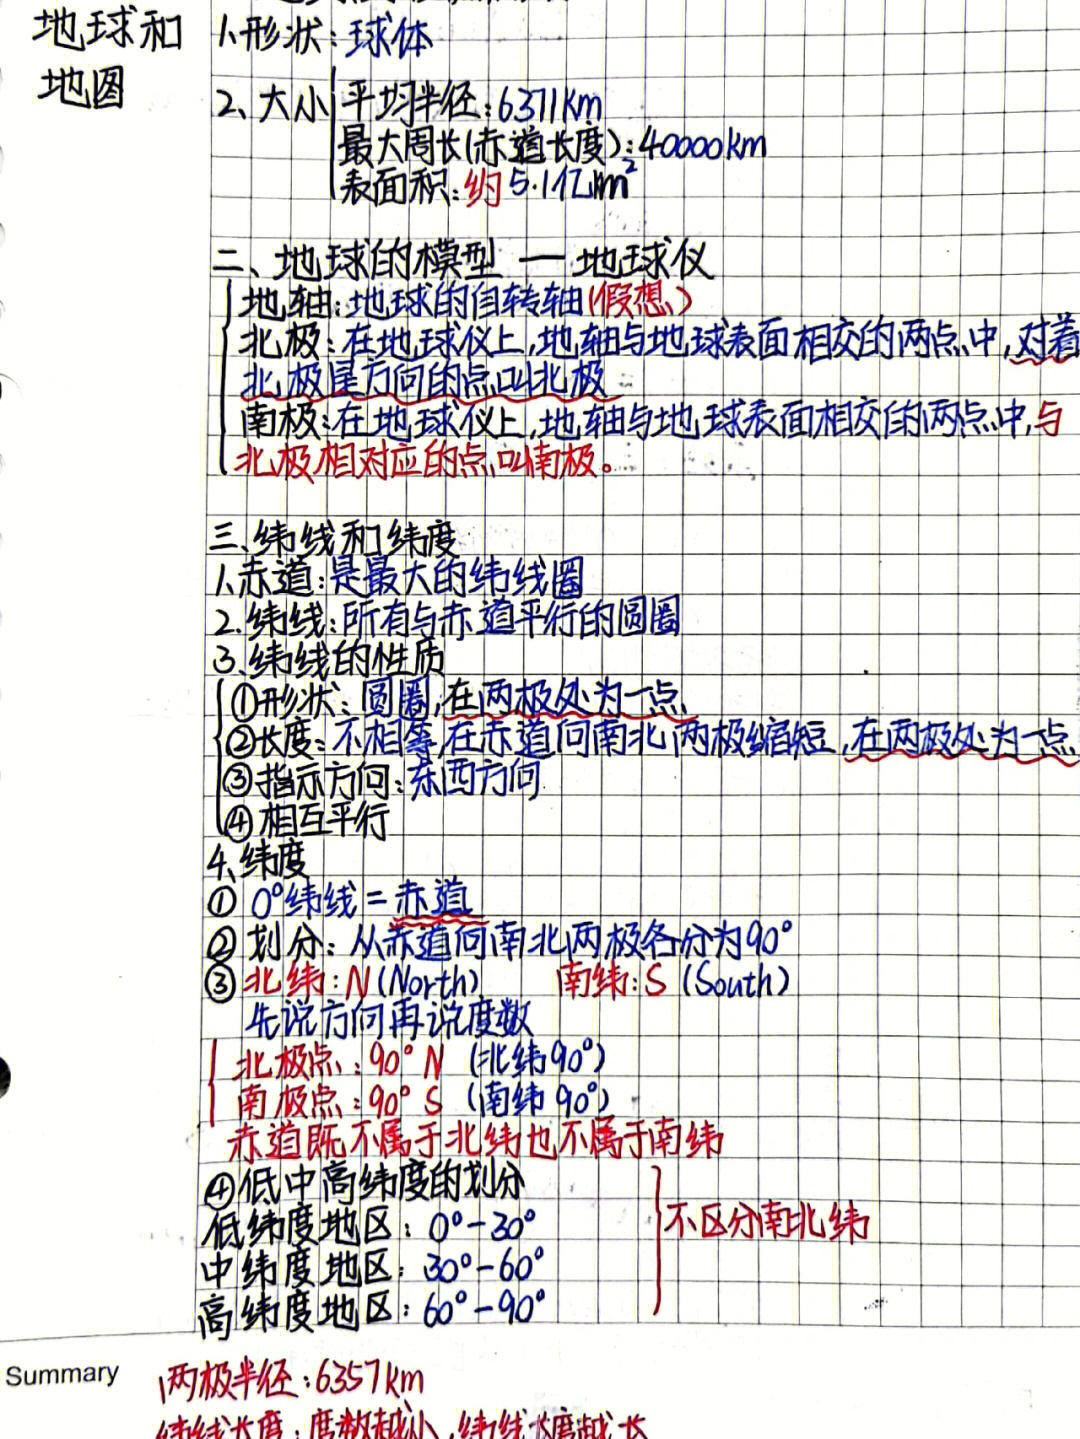 地球和
地图
1.形状:球体
2、大小 平均半径:6371km
最大周长(赤道长度):40000km
表面积:约5.1亿km²
二、地球的模型 — 地球仪
地轴:地球的自转轴(假想)
北极:在地球仪上,地轴与地球表面相交的两点中,对着
北极星方向的点叫北极
南极:在地球仪上,地轴与地球表面相交的两点中,与
北极相对应的点叫南极。
三、纬线和纬度
1.赤道:是最大的纬线圈
2.纬线:所有与赤道平行的圆圈
3.纬线的性质
①形状:圆圈,在两极处为一点
②长度:不相等,在赤道向南北两极缩短,在两极处为一点
③指示方向:东西方向
④相互平行
4、纬度
① 0°纬线=赤道
② 划分:从赤道向南北两极各分为90°
③ 北纬:N(North) 南纬:S(South)
先说方向再说度数
北极点:90°N (北纬90°)
南极点:90°S (南纬90°)
赤道既不属于北纬也不属于南纬
④低中高纬度的划分
低纬度地区:0°-30°
不区分南北纬
中纬度地区:30°-60°
高纬度地区:60°-90°
Summary
两极半径:6357km
纬线长度:度数越小,纬线长度越长